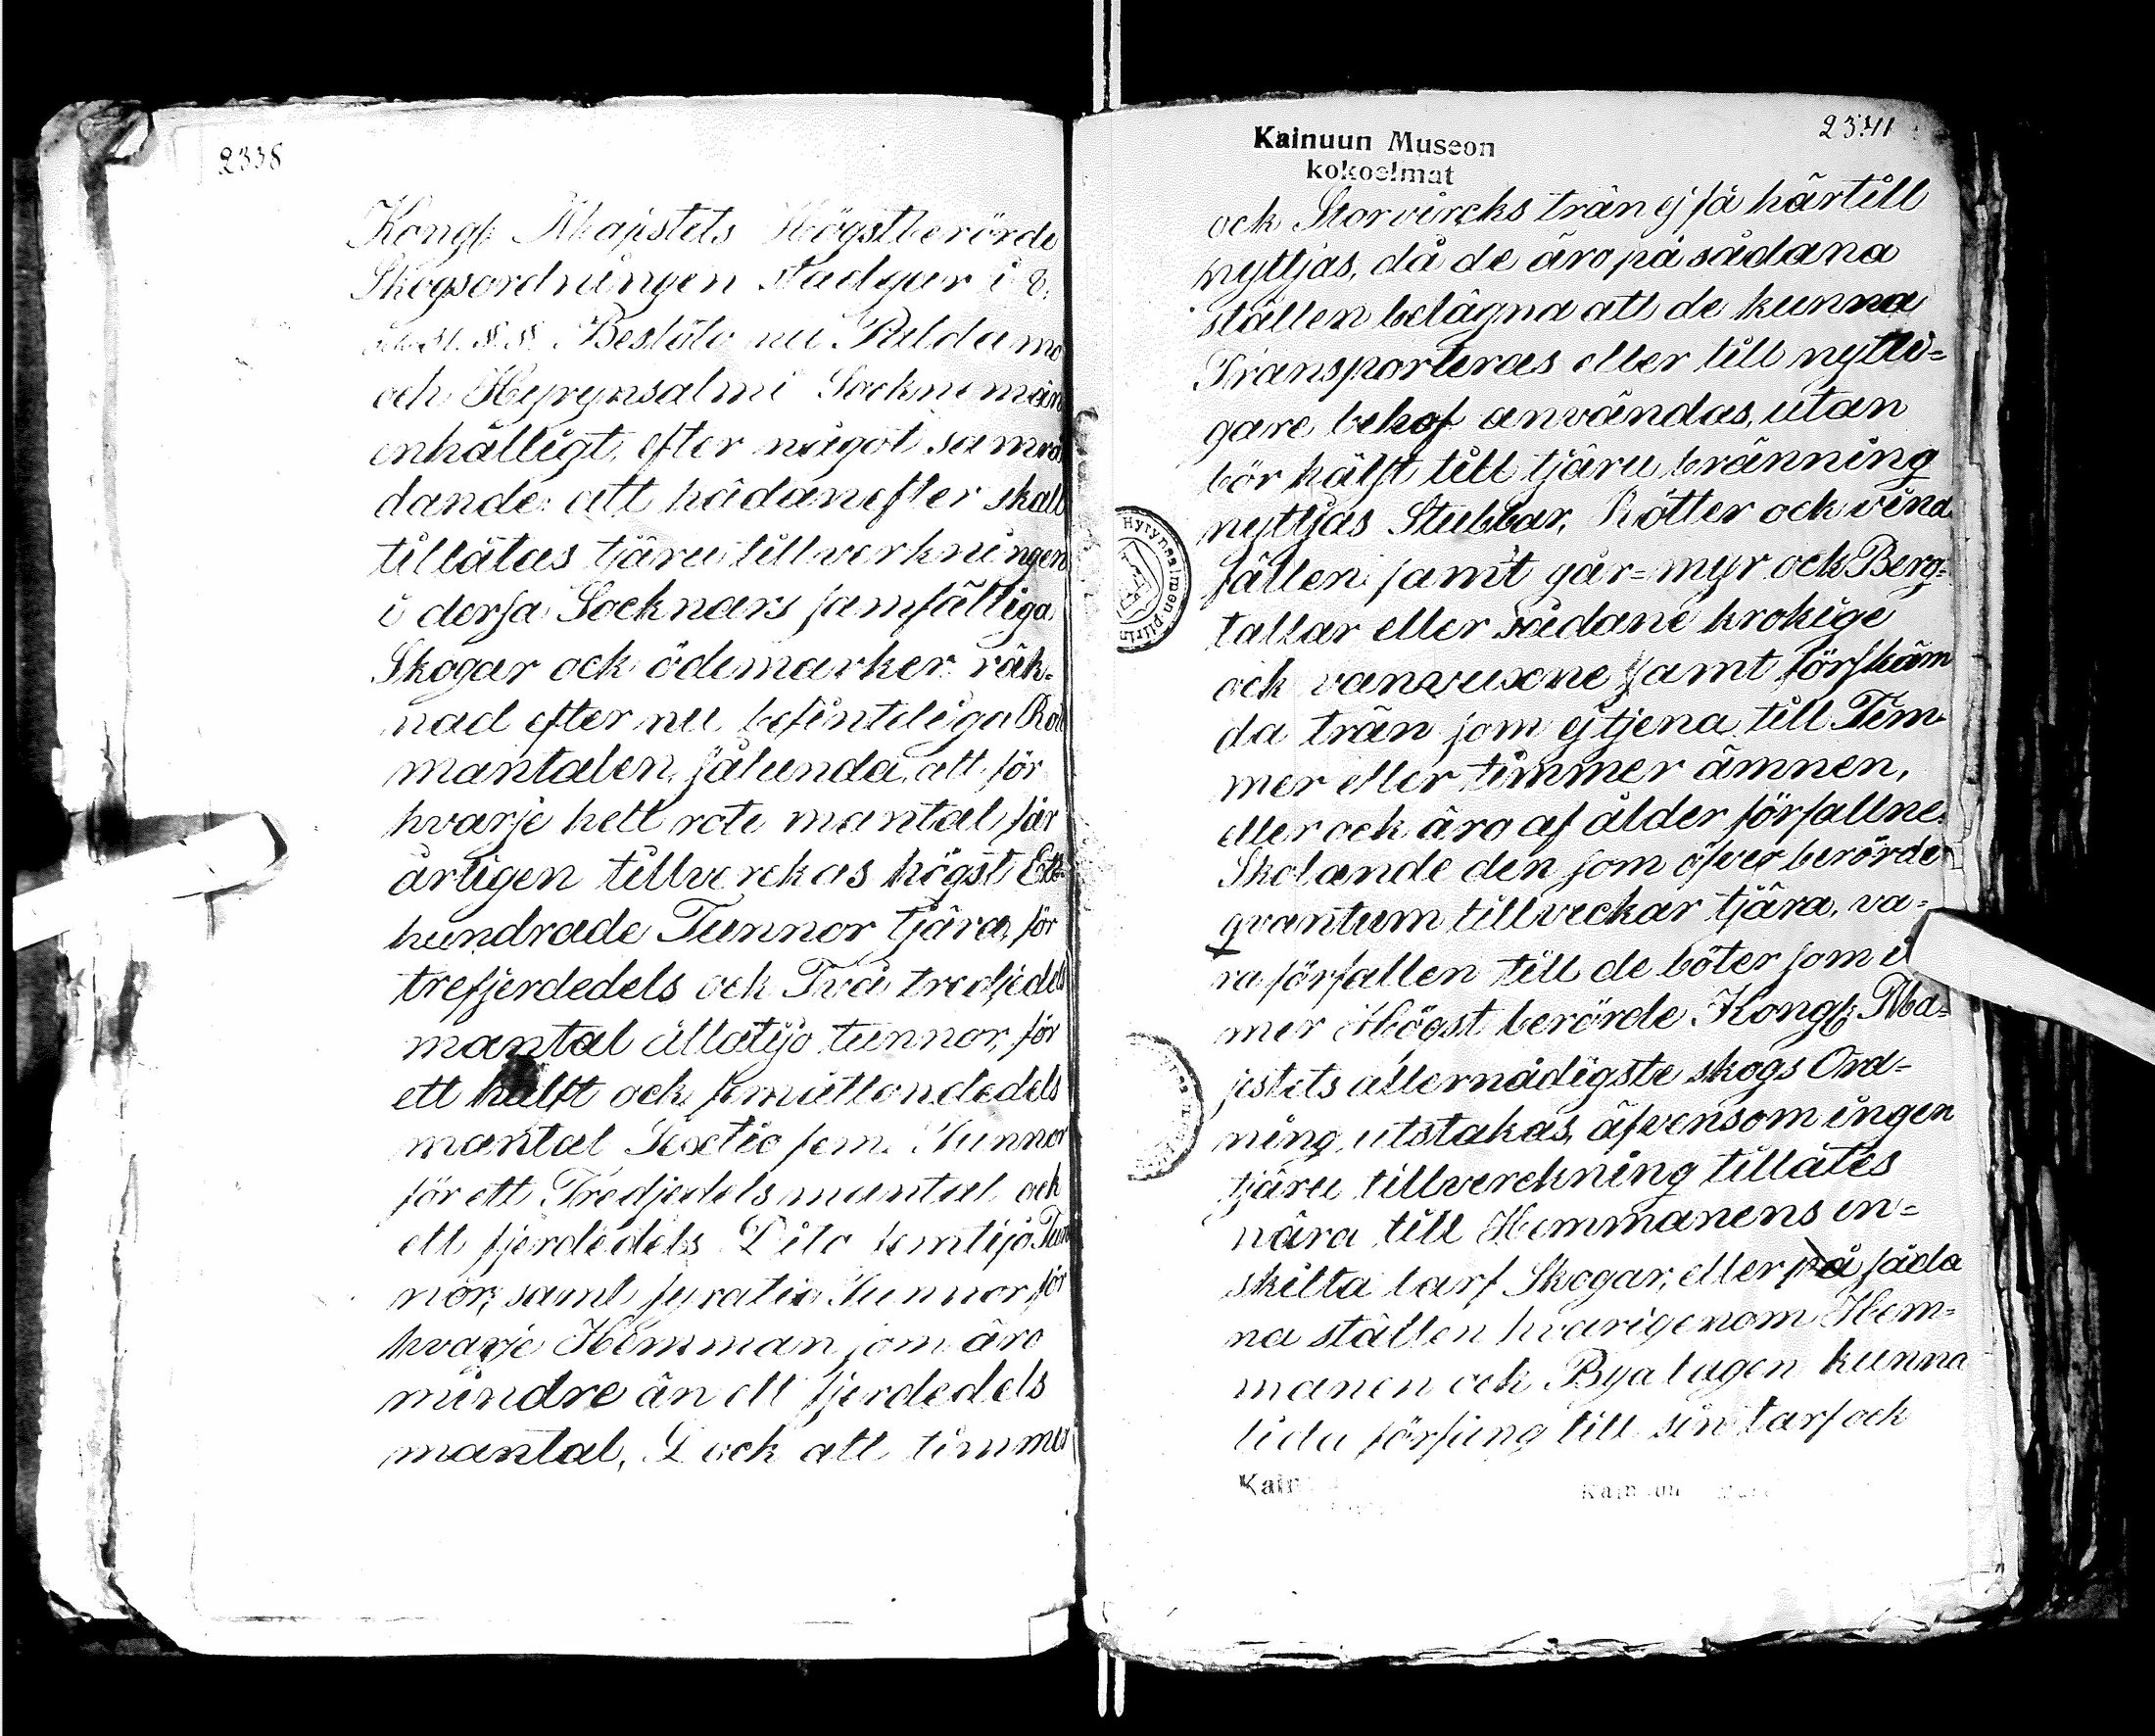 2338
Kongl: Majstets Högstberörde
Skogsordningen stadgar i 8.
§. §. Beslöto nu Paldamo
och Hyrynsalmi Sockne män
enhälligt, efter något samrå
dande: att hädanefter skall
tillåtas tjäru tillverkningen
i dersa Socknars samfälliga
Skogar ock ödemarker räk-
nad efter nu befinteliga Rote
mantalen, sålunda, att för
hvarje helt rote mantal får
årligen tillverckas högst Ett
hundrade Tunnor tjära, för
trefjerdedels och Två tredjedels
mantal åttatijo tunnor, för
ett hälft ock femåttondedels
mantal Sextio fem Tunnor
för ett Tredjedels mantal och
ett fjerdedels Dito femtijo Tun
nor; samt fyratio Tunnor för
hvarje Hemman som äro
mindre än ett fjerdedels
mantal, Dock att timmer
Kainuun Museon
kokoelmat
2341
ock Storvircks trän ej få härtill
nyttjas, då de äro på sådana
ställen belägna att de kunna
Transporteras eller till nytti-
gare behof användas, utan
bör hälst till tjäru bränning
nyttjas Stubbar, Rötter ock vind
fällen samt går- myr ock Berg-
tallar eller sådane krokige
ock vanvuxne samt förskäm
da trän som ej tjena till Tim
mer eller timmer ämnen,
eller ock äro af ålder förfallne.
Skolande den som öfver berörde
qvantum tillveckar tjära, va-
ra förfallen till de böter som i
mer Högst berörde Kongl: Ma-
jestets allernådigste skogs Ord-
ning, utstakas, äfvensom ingen
tjäru tillverckning tillåtes
nära till Hemmanens en-
skilta tarf Skogar, eller på såda
na ställen hvarigenom Hem-
manen ock Byalagen kunna
lida förfång till sin tarf ock
Hyrynsalmen piirin
Kain